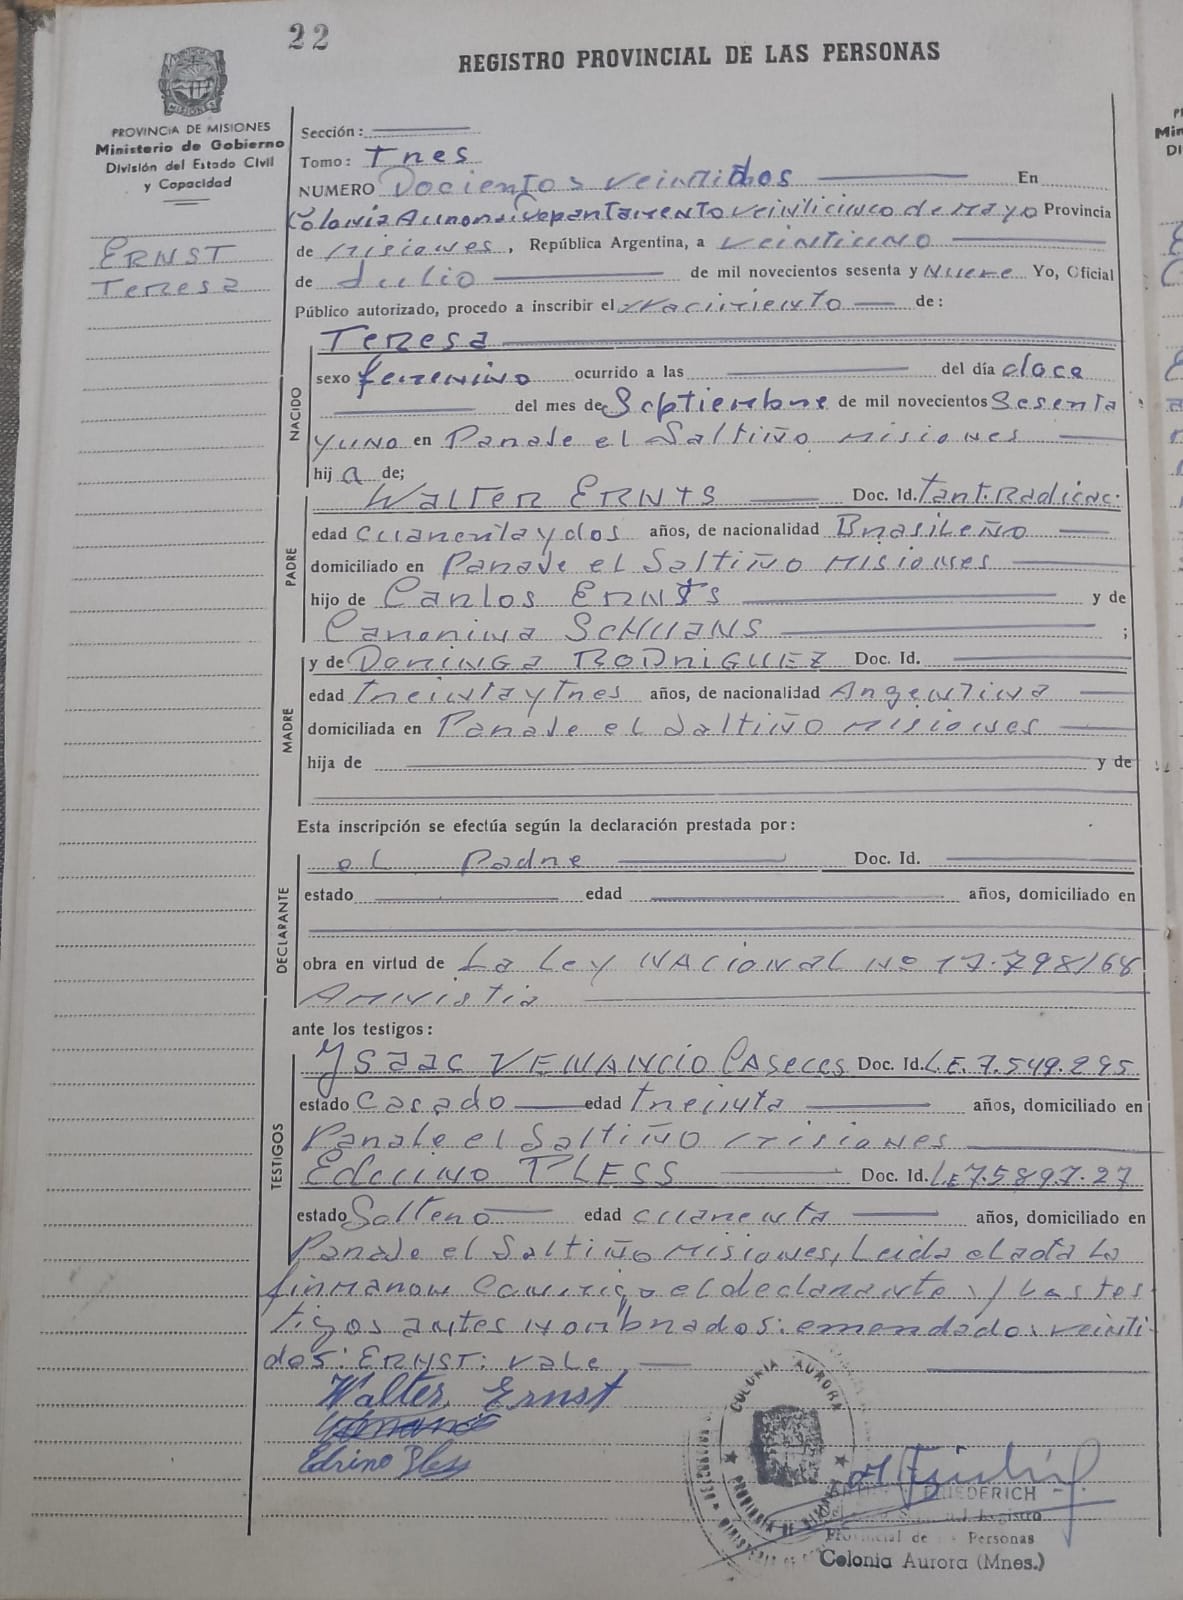 22
REGISTRO PROVINCIAL DE LAS PERSONAS
MISIONES
PROVINCIA DE MISIONES
Ministerio de Gobierno
División del Estado Civil
y Capacidad
ERNST
Teresa
Sección:
Tomo: Tres
NUMERO Docientos veintidos En
Colonia Aurora Departamento Veinticinco de Mayo Provincia
de Misiones, República Argentina, a veintiuno
de Julio de mil novecientos sesenta y Nueve Yo, Oficial
Público autorizado, procedo a inscribir el Nacimiento de:
NACIDO
Teresa
sexo femenino ocurrido a las del día doce
del mes de Septiembre de mil novecientos Sesenta
y uno en Paraje el Saltiño Misiones
hij a de;
PADRE
Walter ERNTS Doc. Id. Tant. Radicac.
edad cuarenta y dos años, de nacionalidad Brasileño
domiciliado en Paraje el Saltiño Misiones
hijo de Carlos ERNTS y de
Canonina SCHUANS ;
MADRE
y de Dominga RODRIGUEZ Doc. Id.
edad Treinta y Tres años, de nacionalidad Argentina
domiciliada en Paraje el Saltiño Misiones
hija de y de
Esta inscripción se efectúa según la declaración prestada por:
DECLARANTE
el Padre Doc. Id.
estado edad años, domiciliado en
obra en virtud de La Ley Nacional Nº 17.798/68
Amnistia
ante los testigos:
TESTIGOS
Ysaac VENANCIO Caseces Doc. Id. L.E. 7.549.295
estado Casado edad Treinta años, domiciliado en
Paraje el Saltiño Misiones
Edcuino PLESS Doc. Id. L.E 7.5897.27
estado Soltero edad cuarenta años, domiciliado en
Paraje el Saltiño Misiones, Leida el acta la
firmaron Conmigo el declarante y Los tes
tigos antes nombrados: emendado: veinti
dos: ERNST: vale
Walter Ernst
Edvino Pless
COLONIA AURORA
PROVINCIA DE MISIONES
FRIEDERICH
Registro
Provincial de las Personas
Colonia Aurora (Mnes.)